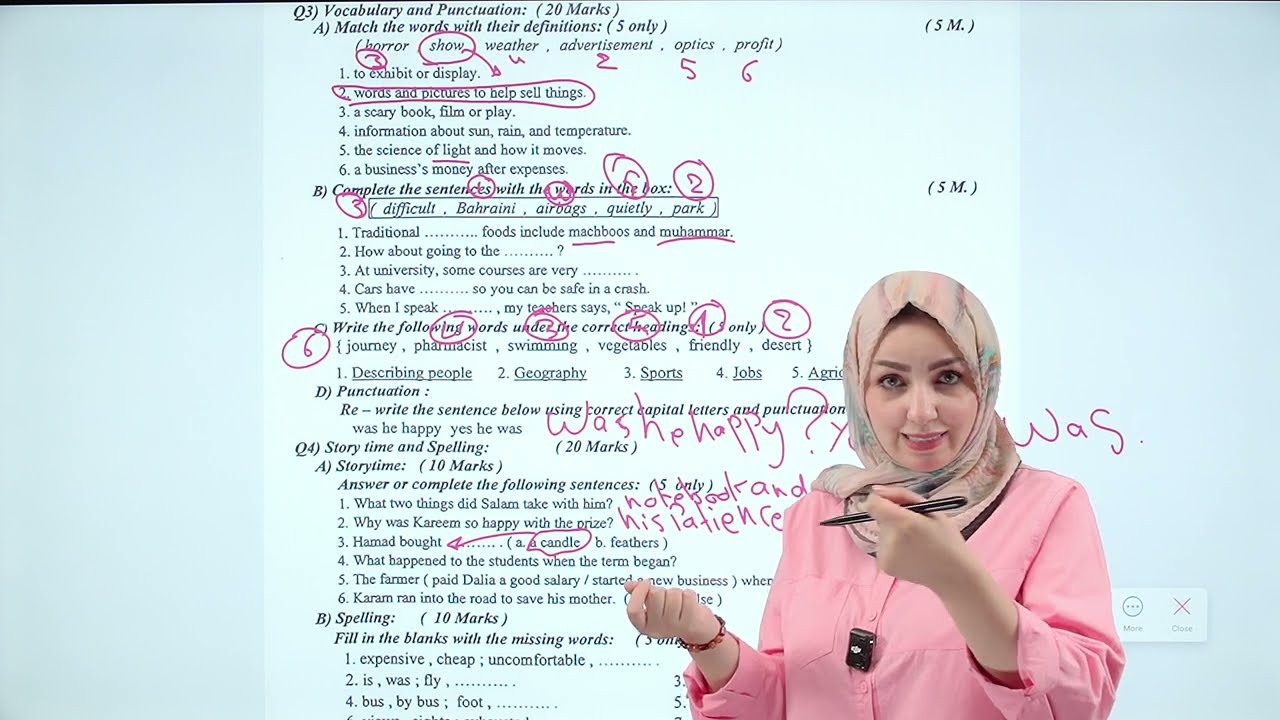 Q3) Vocabulary and Punctuation: ( 20 Marks )
A) Match the words with their definitions: ( 5 only ) ( 5 M. )
( horror show weather , advertisement , optics , profit )
3 4 2 5 6
1. to exhibit or display.
2. words and pictures to help sell things.
3. a scary book, film or play.
4. information about sun, rain, and temperature.
5. the science of light and how it moves.
6. a business's money after expenses.
B) Complete the sentences with the words in the box: ( 5 M. )
3 2
( difficult , Bahraini , airbags , quietly , park )
1. Traditional .......... foods include machboos and muhammar.
2. How about going to the .......... ?
3. At university, some courses are very .......... .
4. Cars have .......... so you can be safe in a crash.
5. When I speak .......... , my teachers says, " Speak up! "
C) Write the following words under the correct headings: ( 5 only )
6 3 1 2
{ journey , pharmacist , swimming , vegetables , friendly , desert }
1. Describing people 2. Geography 3. Sports 4. Jobs 5. Agric
D) Punctuation :
Re – write the sentence below using correct capital letters and punctuation
was he happy yes he was Was he happy ? Was.
Q4) Story time and Spelling: ( 20 Marks )
A) Storytime: ( 10 Marks )
Answer or complete the following sentences: ( 5 only )
1. What two things did Salam take with him? notebook and
2. Why was Kareem so happy with the prize? his
3. Hamad bought .......... . ( a. a candle b. feathers )
4. What happened to the students when the term began?
5. The farmer ( paid Dalia a good salary / started a new business ) when
6. Karam ran into the road to save his mother.
B) Spelling: ( 10 Marks )
Fill in the blanks with the missing words: ( 5 only
1. expensive , cheap ; uncomfortable , .......... .
2. is , was ; fly , .......... . 3.
4. bus , by bus ; foot , .......... . 5.
More Close